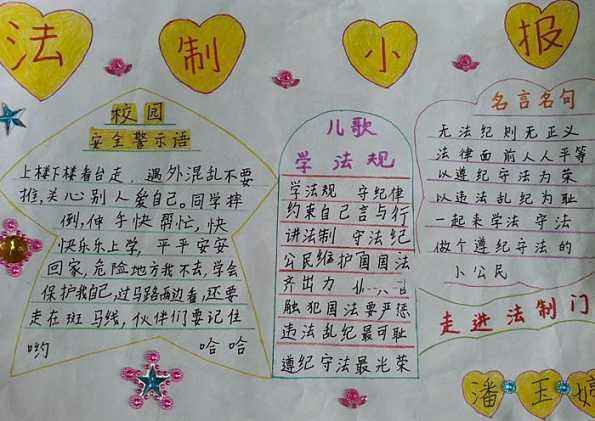 法制小报
校园
安全警示语
上楼下楼看台走，遇外混乱不要
推，关心别人爱自己。同学摔
倒，伸手快帮忙，快
快乐乐上学，平平安安
回家，危险地方我不去，学会
保护我自己，过马路两边看，还要
走在斑马线，伙伴们要记住
哟 哈哈
儿歌
学法规
学法规 守纪律
约束自己言与行
讲法制 守法纪
公民维护国法
齐出力
触犯国法要严惩
违法乱纪最可耻
遵纪守法最光荣
名言名句
无法纪则无正义
法律面前人人平等
以遵纪守法为荣
以违法乱纪为耻
一起来学法守法
做个遵纪守法的
小公民
走进法制门
潘玉婷